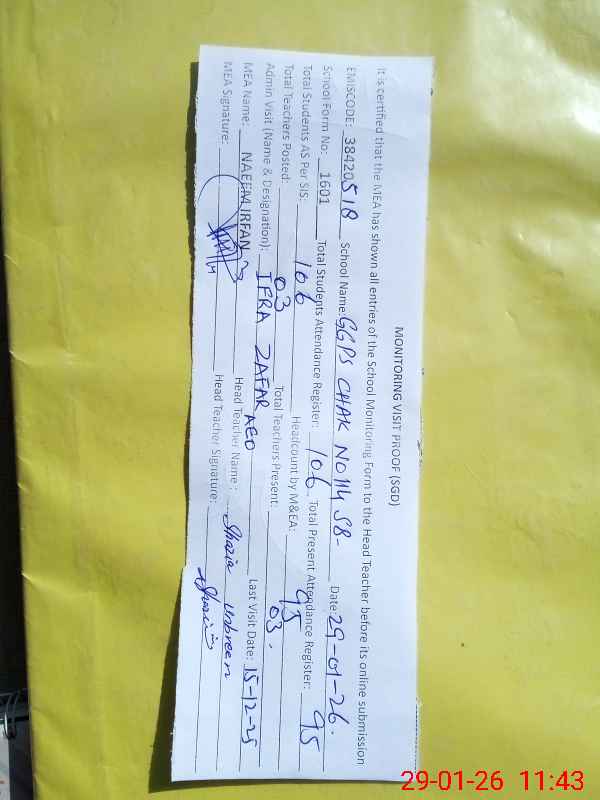 MONITORING VISIT PROOF (SGD)
It is certified that the MEA has shown all entries of the School Monitoring Form to the Head Teacher before its online submission
EMISCODE: 38420518 School Name: GGPS CHAK NO 114 SB- Date: 29-01-26.
School Form No: 1601 Total Students Attendance Register: 106 Total Present Attendance Register: 95
Total Students AS Per SIS: 106 Headcount by M&EA: 95
Total Teachers Posted: 03 Total Teachers Present: 03.
Admin Visit (Name & Designation): IFRA ZAFAR AEO Last Visit Date: 15-12-25
MEA Name: NAEEM IRFAN Head Teacher Name: Shazia Unbreen
MEA Signature: Head Teacher Signature: Shazia
29-01-26 11:43